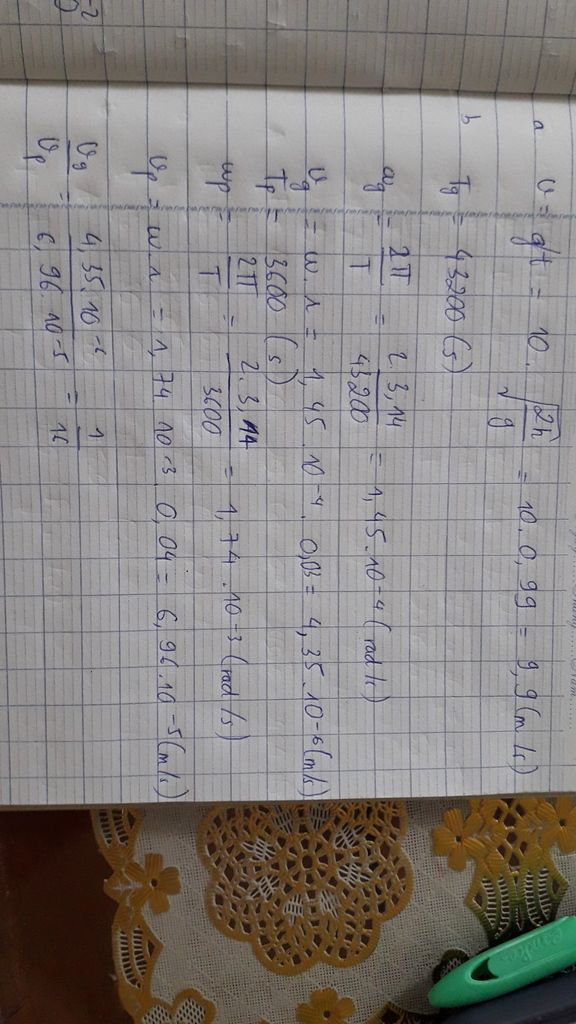 a v = g.t = 10 . √(2h/g) = 10.0,99 = 9,9 (m/s)
b Tg = 43200 (s)
ωg = 2π/T = 2.3,14/43200 = 1,45.10⁻⁴ (rad/s)
vg = ω.r = 1,45.10⁻⁴.0,03 = 4,35.10⁻⁶ (m/s)
Tp = 3600 (s)
ωp = 2π/T = 2.3,14/3600 = 1,74.10⁻³ (rad/s)
vp = ω.r = 1,74 10⁻³.0,04 = 6,96.10⁻⁵ (m/s)
vg/vp = 4,35.10⁻⁶/6,96.10⁻⁵ = 1/16